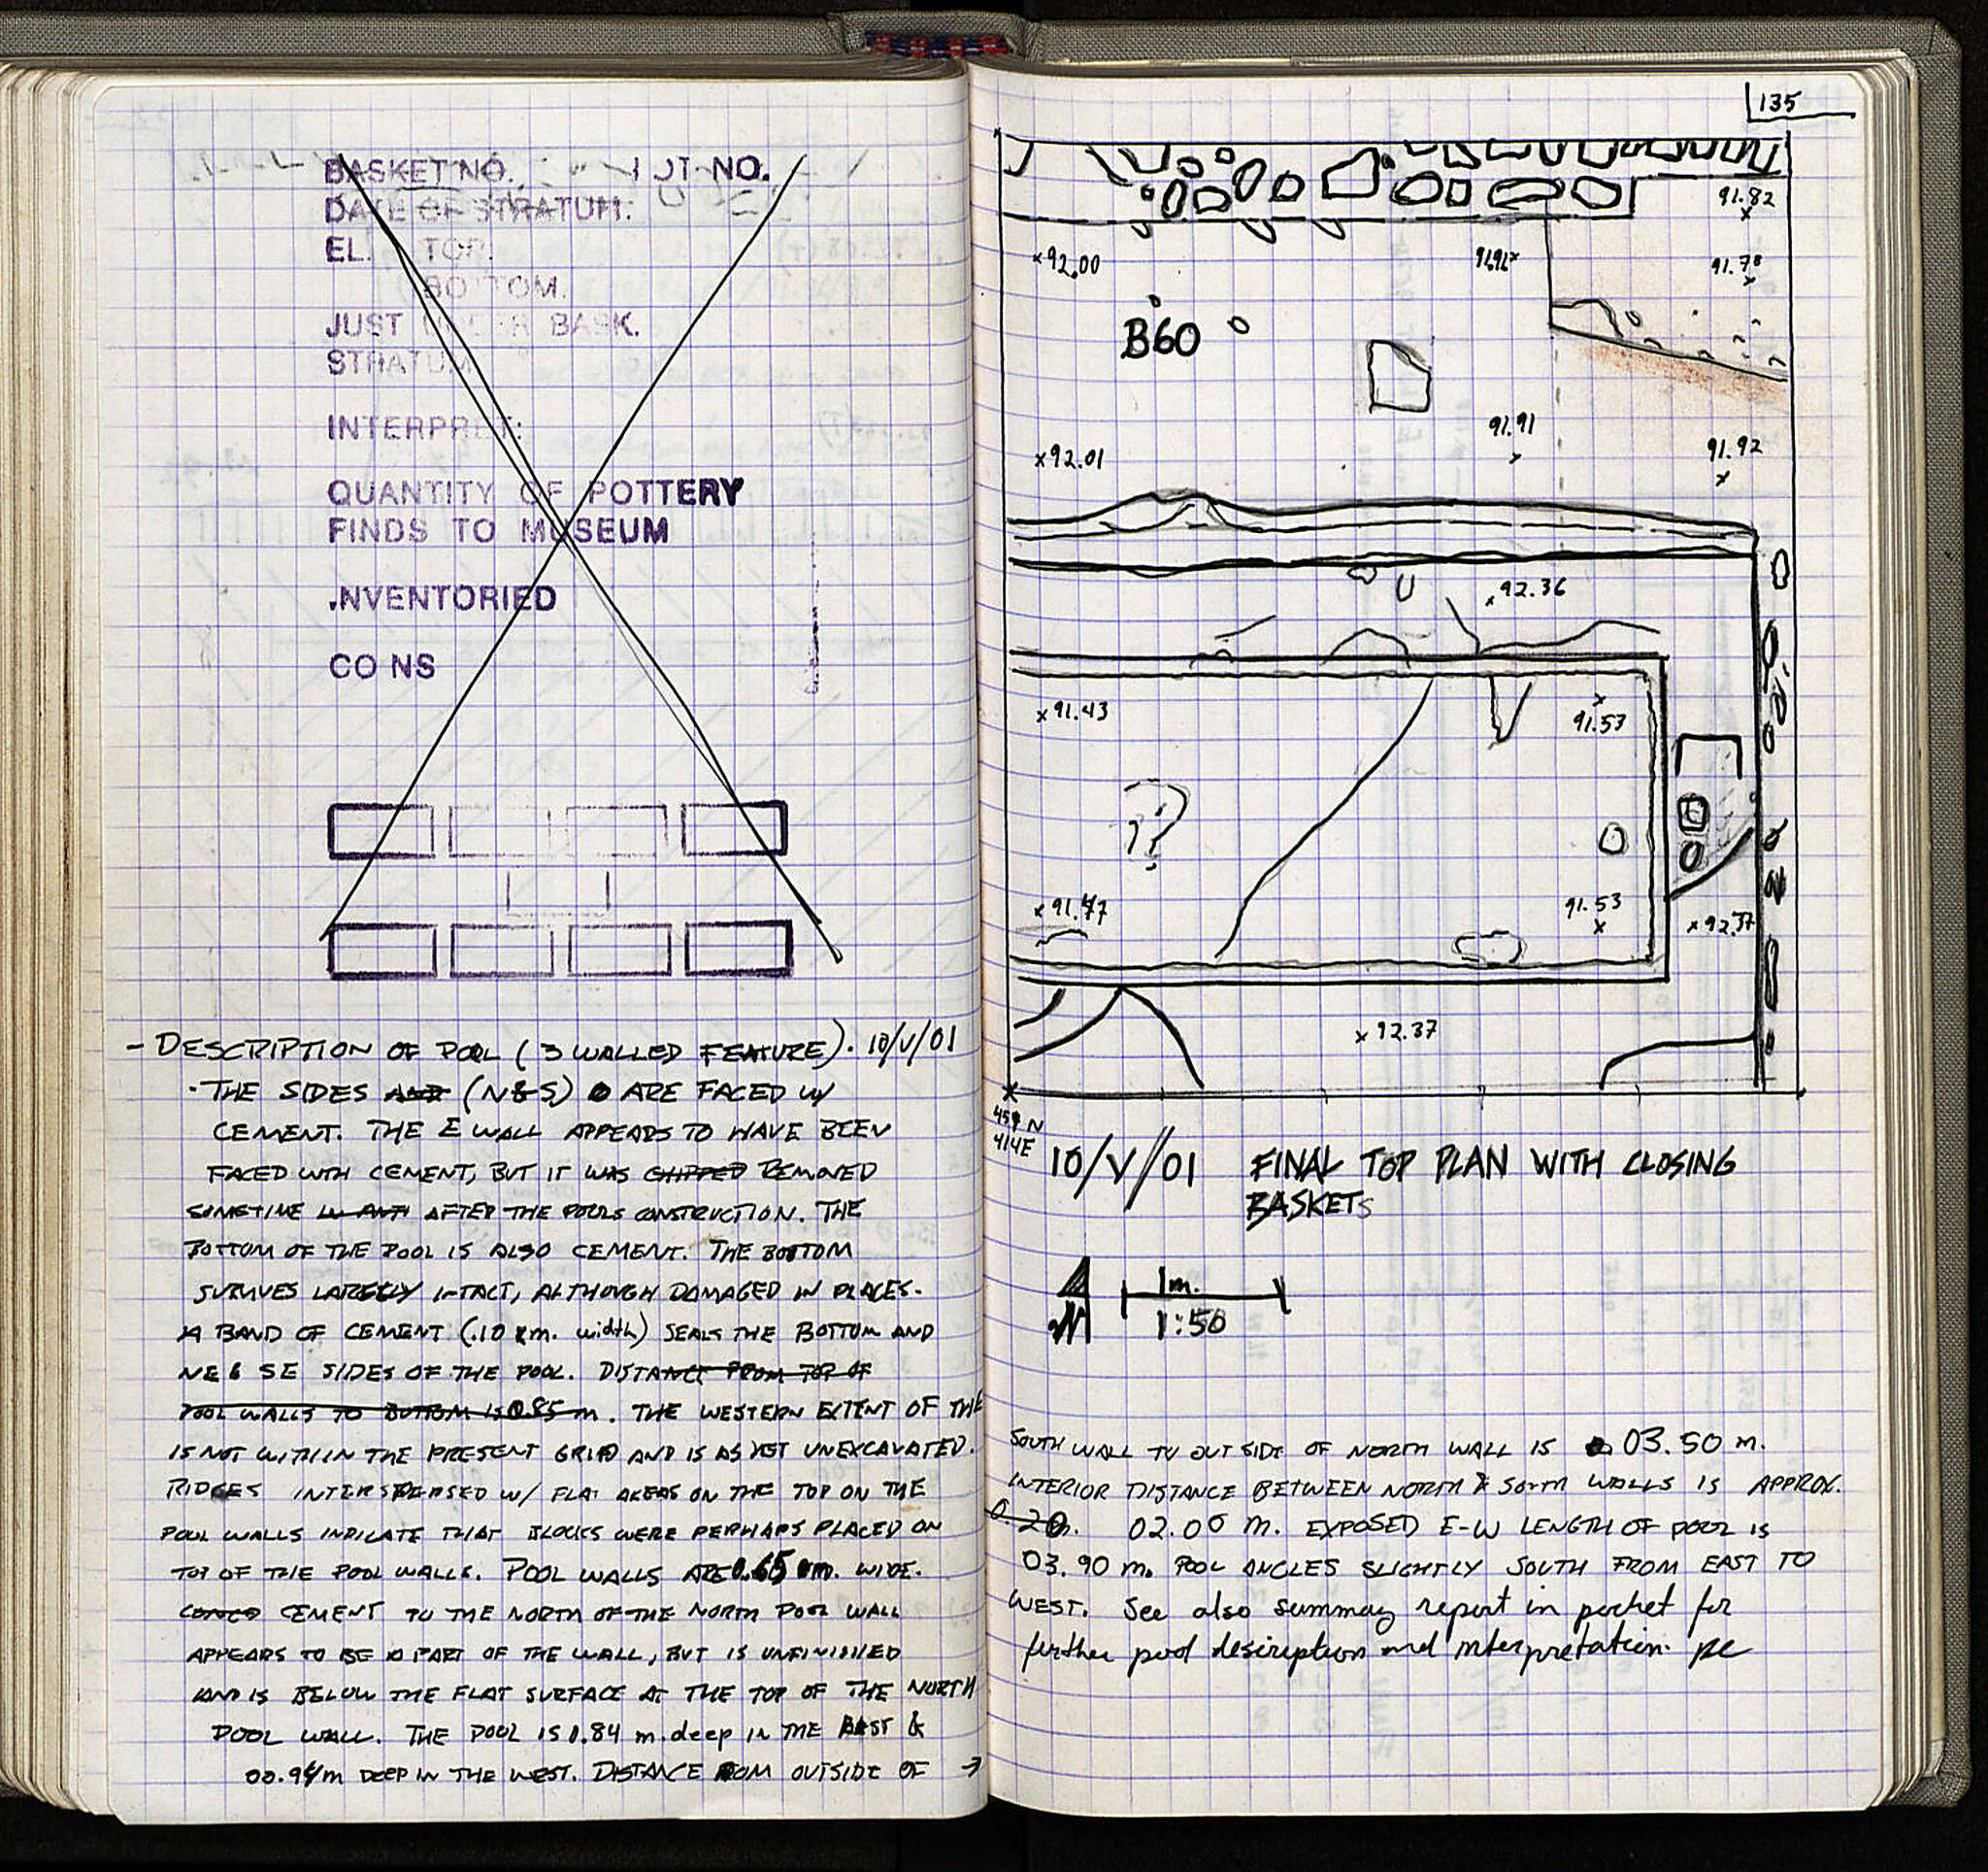 BASKET NO. LOT NO.
DATE OF STRATUM:
EL. TOP.
BOTTOM.
JUST UNDER BASK.
STRATUM
INTERPRET:
QUANTITY OF POTTERY
FINDS TO MUSEUM
.NVENTORIED
CO NS
- DESCRIPTION OF POOL (3 WALLED FEATURE). 10/V/01
· THE SIDES AND (N & S) ARE FACED W/
CEMENT. THE E WALL APPEARS TO HAVE BEEN
FACED WITH CEMENT, BUT IT WAS CHIPPED REMOVED
SOMETIME IN ANTI AFTER THE POOLS CONSTRUCTION. THE
BOTTOM OF THE POOL IS ALSO CEMENT. THE BOTTOM
SURVIVES LARGELY INTACT, ALTHOUGH DAMAGED IN PLACES.
A BAND OF CEMENT (.10 m. width) SEALS THE BOTTOM AND
NE & SE SIDES OF THE POOL. DISTANCE FROM TOP OF
POOL WALLS TO BOTTOM IS 0.85 m. THE WESTERN EXTENT OF THE
IS NOT WITHIN THE PRESENT GRID AND IS AS YET UNEXCAVATED.
RIDGES INTERSPERSED W/ FLAT AREAS ON THE TOP ON THE
POOL WALLS INDICATE THAT BLOCKS WERE PERHAPS PLACED ON
TOP OF THE POOL WALLS. POOL WALLS ARE 0.65 m. WIDE.
CEMENT TO THE NORTH OF THE NORTH POOL WALL
APPEARS TO BE A PART OF THE WALL, BUT IS UNFINISHED
AND IS BELOW THE FLAT SURFACE AT THE TOP OF THE NORTH
POOL WALL. THE POOL IS 0.84 m. deep IN THE EAST &
00.94m DEEP IN THE WEST. DISTANCE FROM OUTSIDE OF →
135
91.82
x
x92.00
91.78
x
B60
91.91
x
x92.01
91.92
x
x92.36
x91.43
x
91.53
??
x91.47
91.53
x
x92.37
x92.37
x
459 N
414E
10/V/01 FINAL TOP PLAN WITH CLOSING
BASKETS
N
1m.
1:50
SOUTH WALL TO OUTSIDE OF NORTH WALL IS 03.50 m.
INTERIOR DISTANCE BETWEEN NORTH & SOUTH WALLS IS APPROX.
0.20. 02.00 m. EXPOSED E-W LENGTH OF POOL IS
03.90 m. POOL ANGLES SLIGHTLY SOUTH FROM EAST TO
WEST. See also summary report in pocket for
further pool description and interpretation. pc